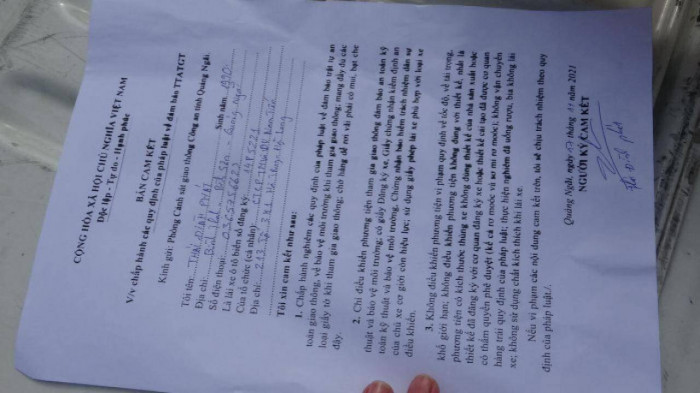 CỘNG HÒA XÃ HỘI CHỦ NGHĨA VIỆT NAM
Độc lập - Tự do - Hạnh phúc
BẢN CAM KẾT
V/v chấp hành các quy định của pháp luật về đảm bảo TTATGT
Kính gửi: Phòng Cảnh sát giao thông Công an tỉnh Quảng Ngãi.
Tôi tên: Sinh năm: 1990
Địa chỉ: Bình
Số điện thoại:
Là lái xe ô tô biển số đăng ký:
Của tổ chức (cá nhân):
Địa chỉ:
Tôi xin cam kết như sau:
1. Chấp hành nghiêm các quy định của pháp luật về đảm bảo trật tự an
toàn giao thông, về bảo vệ môi trường khi tham gia giao thông; mang đầy đủ các
loại giấy tờ khi tham gia giao thông; chở hàng dễ rơi vãi phải có mui, bạt che
đậy.
2. Chỉ điều khiển phương tiện tham gia giao thông đảm bảo an toàn kỹ
thuật và bảo vệ môi trường; có giấy Đăng ký xe, Giấy chứng nhận kiểm định an
toàn kỹ thuật và bảo vệ môi trường, Chứng nhận bảo hiểm trách nhiệm dân sự
của chủ xe cơ giới còn hiệu lực, sử dụng giấy phép lái xe phù hợp với loại xe
điều khiển.
3. Không điều khiển phương tiện vi phạm quy định về tốc độ, về tải trọng,
khổ giới hạn; không điều khiển phương tiện không đúng với thiết kế, nhất là
phương tiện có kích thước thùng xe không đúng thiết kế của nhà sản xuất hoặc
thiết kế đã đăng ký với cơ quan đăng ký xe hoặc thiết kế cải tạo đã được cơ quan
có thẩm quyền phê duyệt (kể cả rơ moóc và sơ mi rơ moóc); không vận chuyển
hàng trái quy định của pháp luật; thực hiện nghiêm đã uống rượu, bia không lái
xe; không sử dụng chất kích thích khi lái xe.
Nếu vi phạm các nội dung cam kết trên, tôi sẽ chịu trách nhiệm theo quy
định của pháp luật./.
Quảng Ngãi, ngày tháng 11 năm 2021
NGƯỜI KÝ CAM KẾT